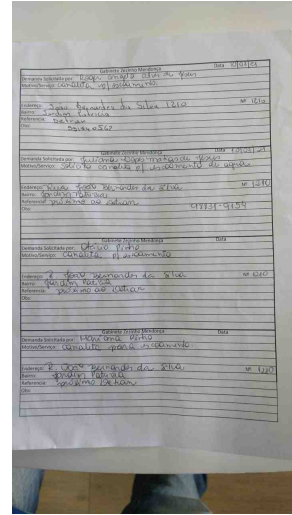 Gabinete Zezinho Mendonça Data
Demanda Solicitada por: Roger
Motivo/Serviço: canaleta p/ escoamento
Endereço: João Bernardes da Silva 1210 Nº 1210
Bairro: Jardim Patricia
Referencia: Detran
Obs:
Gabinete Zezinho Mendonça Data
Demanda Solicitada por: Juliana
Motivo/Serviço: Solicito canaleta p/ escoamento de agua
Endereço: Rua João Bernardes da Silva Nº 1210
Bairro: Jardim Patricia
Referencia: próximo ao detran
Obs:
Gabinete Zezinho Mendonça Data
Demanda Solicitada por: Pinho
Motivo/Serviço: canaleta p/ escoamento
Endereço: R. João Bernardes da Silva Nº
Bairro: Jardim Patricia
Referencia: próximo ao Detran
Obs:
Gabinete Zezinho Mendonça Data
Demanda Solicitada por: Mariana Pinho
Motivo/Serviço: canaleta para escoamento
Endereço: R. João Bernardes da Silva Nº
Bairro: Jardim Patricia
Referencia: próximo Detran
Obs: